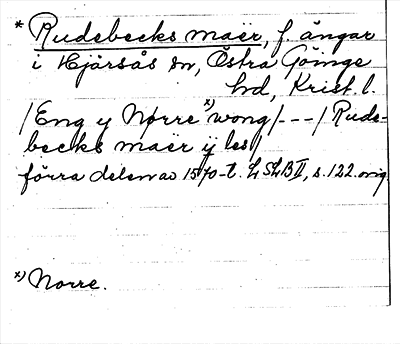 * Rudebecks maër, f. ängar
i Hjärsås sn, Östra Göinge
hd, Krist. l.
/Eng y Nørre x) wong/---/Rude-
becks maër ÿ les/
förra delen av 1570-t. LSLB II, s. 122. orig.
x) Norre.